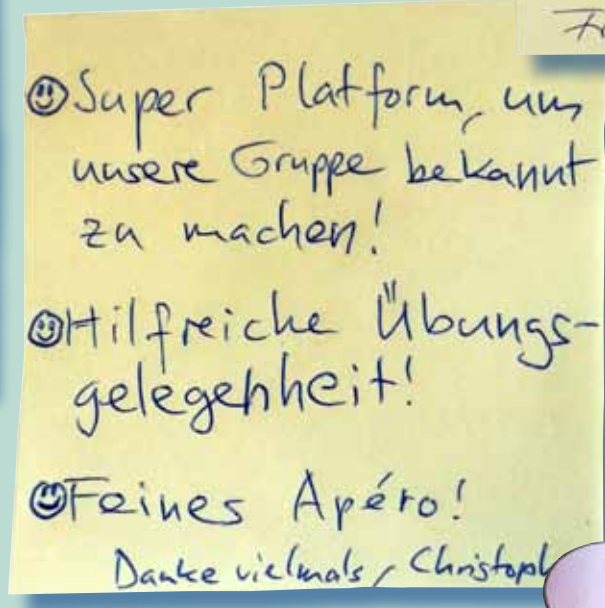 ☺Super Platform, um
unsere Gruppe bekannt
zu machen!
☺Hilfreiche Übungs-
gelegenheit!
☺Feines Apéro!
Danke vielmals, Christoph